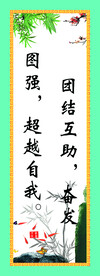 团结互助，奋发
图强，超越自我。